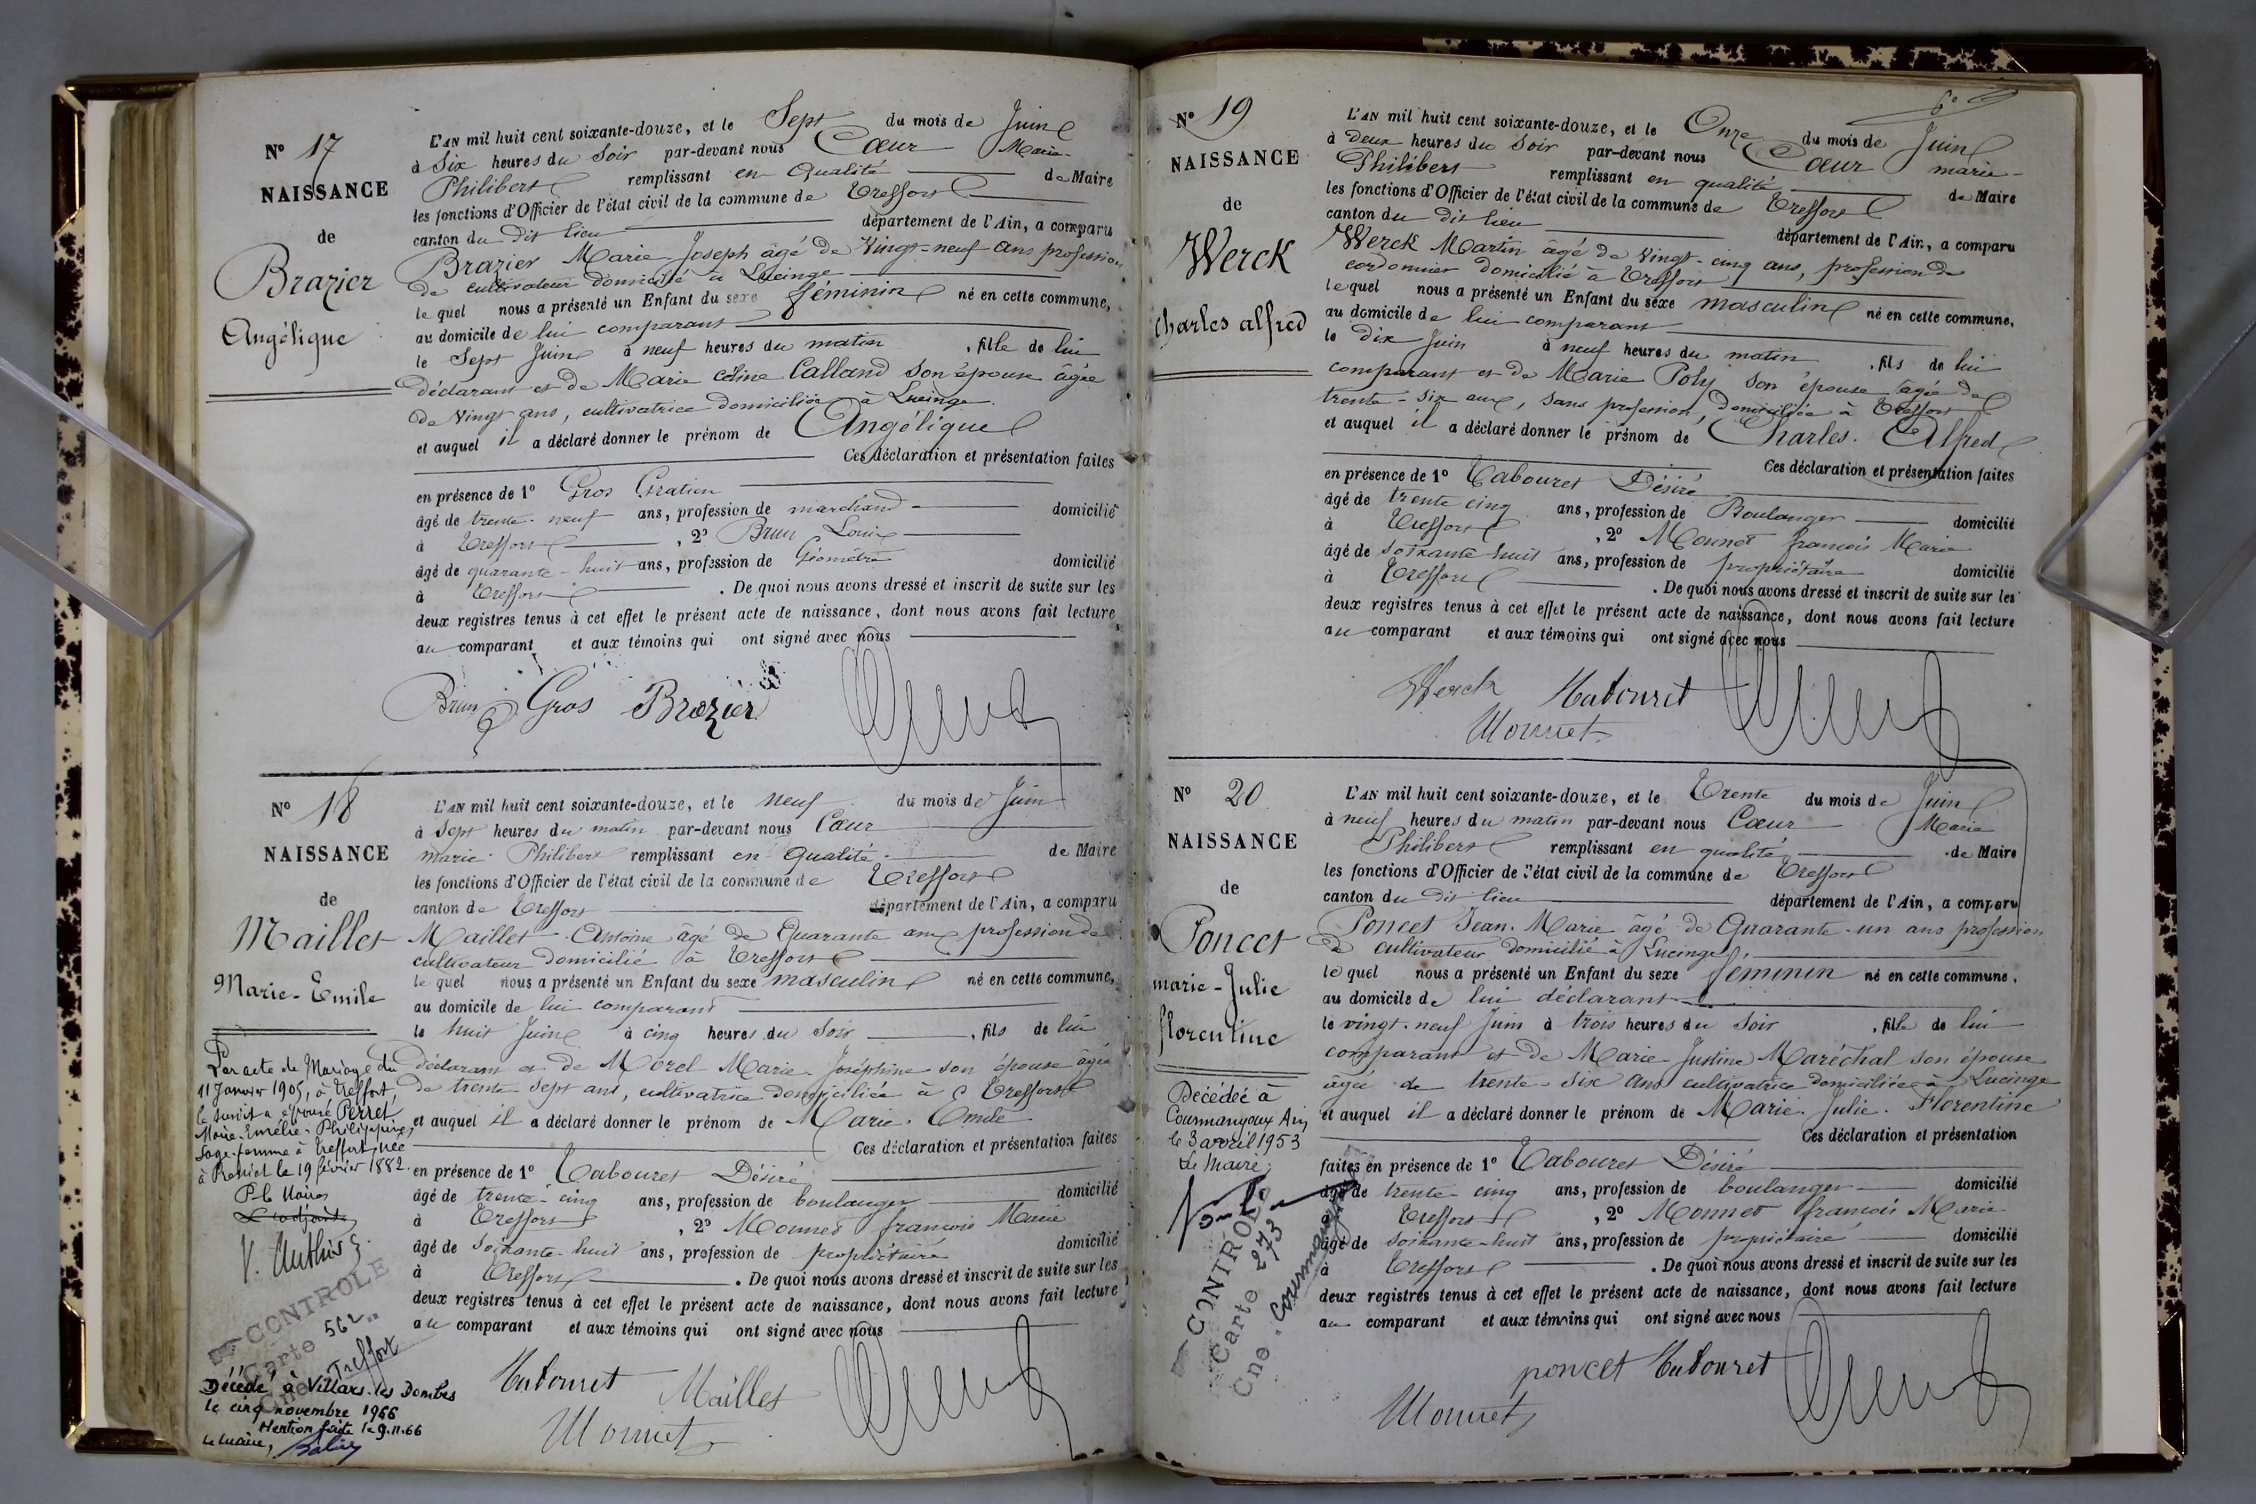 N° 17
NAISSANCE
de
Brazier
Angélique
L'AN mil huit cent soixante-douze, et le Sept du mois de Juin
à Six heures du Soir par-devant nous Cœur Marie
Philibert remplissant en Qualité de Maire
les fonctions d'Officier de l'état civil de la commune de Treffort
canton du dit lieu département de l'Ain, a comparu
Brazier Marie Joseph âgé de Vingt-neuf ans profession
de cultivateur domicilié à Lucinge
le quel nous a présenté un Enfant du sexe féminin né en cette commune,
au domicile de lui comparant
le Sept Juin à neuf heures du matin, fille de lui
déclarant et de Marie Céline Calland son épouse âgée
de vingt ans, cultivatrice domiciliée à Lucinge.
et auquel il a déclaré donner le prénom de Angélique
Ces déclaration et présentation faites
en présence de 1° Gros Gratien
âgé de trente-neuf ans, profession de marchand domicilié
à Treffort, 2° Brun Louis
âgé de quarante-huit ans, profession de Géomètre domicilié
à Treffort. De quoi nous avons dressé et inscrit de suite sur les
deux registres tenus à cet effet le présent acte de naissance, dont nous avons fait lecture
au comparant et aux témoins qui ont signé avec nous
Brun Gros Brazier
N° 18
NAISSANCE
de
Maillet
Marie-Emile
Par acte de Mariage du
11 Janvier 1905, à Treffort,
le susdit a épousé Perret
Marie-Emélie-Philippine,
Sage-femme à Treffort, née
à Revier le 19 février 1882.
L'adjoint
CONTROLE
Carte 562
Cne Treffort
Décédé à Villars-les Dombes
le cinq novembre 1966
Mention faite le 9.11.66
Le Maire,
L'AN mil huit cent soixante-douze, et le neuf du mois de Juin
à Sept heures du matin par-devant nous Cœur
marie Philibert remplissant en Qualité de Maire
les fonctions d'Officier de l'état civil de la commune de Treffort
canton de Treffort département de l'Ain, a comparu
Maillet Antoine âgé de Quarante ans profession de
cultivateur domicilié à Treffort
le quel nous a présenté un Enfant du sexe masculin né en cette commune,
au domicile de lui comparant
le huit Juin à cinq heures du Soir, fils de lui
déclarant et de Morel Marie Joséphine son épouse âgée
de trente sept ans, cultivatrice domiciliée à Treffort
et auquel il a déclaré donner le prénom de Marie Emile
Ces déclaration et présentation faites
en présence de 1° Tabouret Désiré
âgé de trente-cinq ans, profession de boulanger domicilié
à Treffort, 2° Monnet françois Marie
âgé de soixante-huit ans, profession de propriétaire domicilié
à Treffort. De quoi nous avons dressé et inscrit de suite sur les
deux registres tenus à cet effet le présent acte de naissance, dont nous avons fait lecture
au comparant et aux témoins qui ont signé avec nous
Tabouret Maillet
Monnet
N° 19
NAISSANCE
de
Werck
Charles alfred
L'AN mil huit cent soixante-douze, et le Onze du mois de Juin
à deux heures du Soir par-devant nous Cœur marie
Philibert remplissant en qualité de Maire
les fonctions d'Officier de l'état civil de la commune de Treffort
canton du dit lieu département de l'Ain, a comparu
Werck Martin âgé de Vingt-cinq ans, profession de
cordonnier domicilié à Treffort
le quel nous a présenté un Enfant du sexe masculin né en cette commune,
au domicile de lui comparant
le dix Juin à neuf heures du matin, fils de lui
comparant et de Marie Poly son épouse âgée de
trente-six ans, sans profession, domiciliée à Treffort
et auquel il a déclaré donner le prénom de Charles. Alfred
Ces déclaration et présentation faites
en présence de 1° Tabouret Désiré
âgé de trente cinq ans, profession de Boulanger domicilié
à Treffort, 2° Monnet françois Marie
âgé de soixante-huit ans, profession de propriétaire domicilié
à Treffort. De quoi nous avons dressé et inscrit de suite sur les
deux registres tenus à cet effet le présent acte de naissance, dont nous avons fait lecture
au comparant et aux témoins qui ont signé avec nous
Werck Tabouret
Monnet
N° 20
NAISSANCE
de
Poncet
marie-Julie
florentine
Décédée à
Courmangoux Ain
le 3 avril 1953
Le Maire
CONTROLE
Carte 273
Cne. Courmangoux
L'AN mil huit cent soixante-douze, et le Trente du mois de Juin
à neuf heures du matin par-devant nous Cœur Marie
Philibert remplissant en qualité de Maire
les fonctions d'Officier de l'état civil de la commune de Treffort
canton du dit lieu département de l'Ain, a comparu
Poncet Jean-Marie âgé de Quarante-un ans profession
de cultivateur domicilié à Lucinge,
le quel nous a présenté un Enfant du sexe féminin né en cette commune,
au domicile de lui déclarant
le vingt-neuf Juin à trois heures du Soir, fille de lui
comparant et de Marie-Justine Maréchal son épouse
âgée de trente-six ans cultivatrice domiciliée à Lucinge
et auquel il a déclaré donner le prénom de Marie. Julie. Florentine
Ces déclaration et présentation
faites en présence de 1° Tabouret Désiré
âgé de trente-cinq ans, profession de boulanger domicilié
à Treffort, 2° Monnet françois Marie
âgé de soixante-huit ans, profession de propriétaire domicilié
à Treffort. De quoi nous avons dressé et inscrit de suite sur les
deux registres tenus à cet effet le présent acte de naissance, dont nous avons fait lecture
au comparant et aux témoins qui ont signé avec nous
poncet Tabouret
Monnet